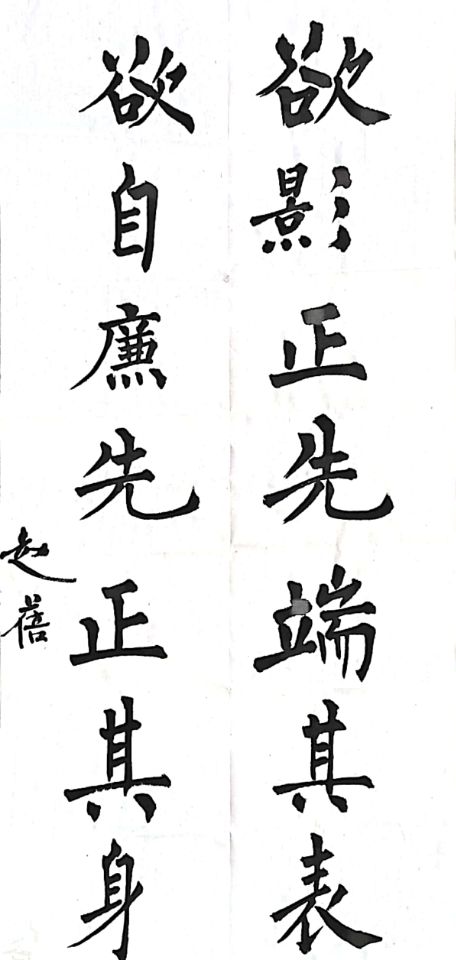 欲影正先端其表
欲自廉先正其身
赵蓓